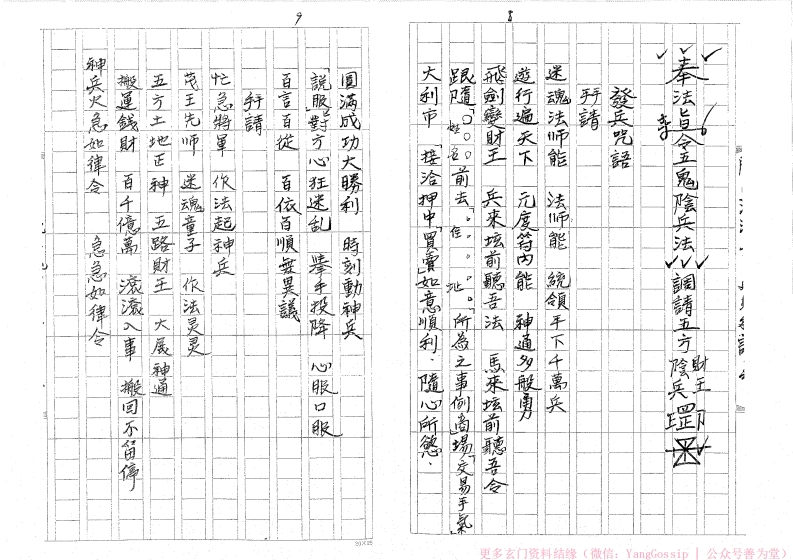 8
奉法旨令五鬼陰兵法 調請五方陰兵財王 罡印
發兵咒語
拜請
迷魂法師能 法師能 統領手下千萬兵
遊行遍天下 元度符內能 神通多般勇
飛劍變財王 兵來坛前聽吾法 馬來坛前聽吾令
跟隨「○○○姓名」前去「。住。。。址。」所為之事例「商場」「交易手氣」
大利市「接洽押中」「買賣」如意順利．隨心所慾．
9
圓滿成功大勝利 時刻動神兵
「說服」對方心狂迷亂 舉手投降 心服口服
百言百從 百依百順無異議
拜請
忙急將軍 作法起神兵
茂王先師 迷魂童子 作法灵灵
五方土地正神 五路財王 大展神通
搬運錢財 百千億萬 滾滾入事 搬回不留停
神兵火急如律令 急急如律令
20×25
更多玄门资料结缘（微信：YangGossip | 公众号善为堂）